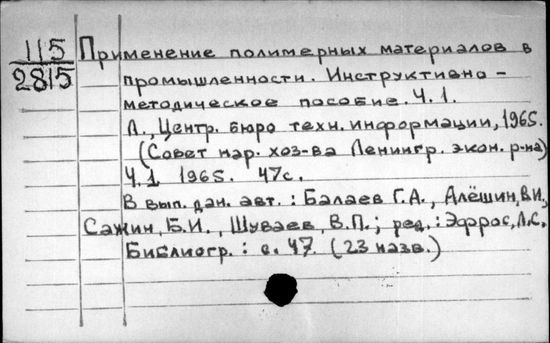 115
2815
Применение полимерных материалов в
промышленности. Инструктивно-
методическое пособие. Ч. 1.
Л., Центр. бюро техн. информации, 1965.
(Совет нар. хоз-ва Ленингр. экон. р-на)
Ч. 1 1965. 47с.
В вып. дан. авт.: Балаев Г.А., Алёшин, В.И.,
Сажин, Б.И., Шуваев, В.П.; ред.: Эфрос, Л.С.
Библиогр.: с. 47. (23 назв.)